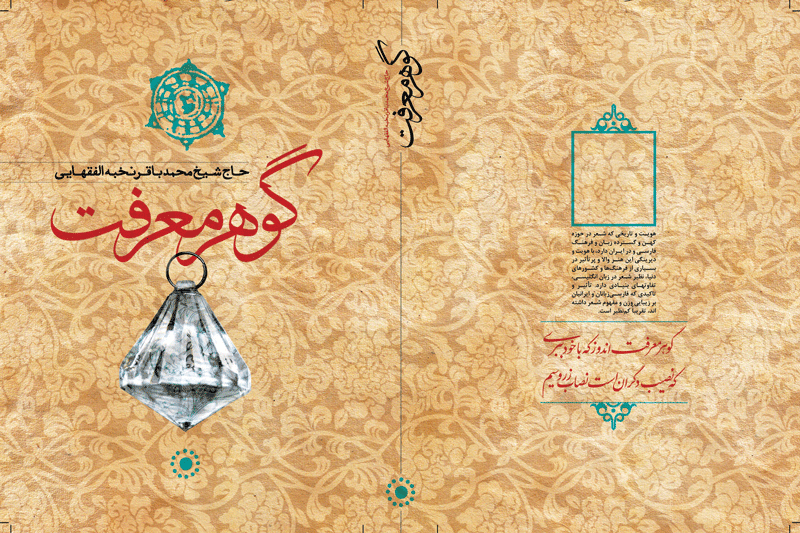 حاج شیخ محمدباقر نخبه الفقهایی
گوهر معرفت
گوهر معرفت
حاج شیخ محمدباقر نخبه الفقهایی
هویت و تاریخی که شعر در حوزه
کهن و گسترده زبان و فرهنگ
فارسی و در ایران دارد، با هویت و
دیرینگی این هنر والا و پرتأثیر در
بسیاری از فرهنگ‌ها و کشورهای
دنیا، نظیر شعر در زبان انگلیسی،
تفاوتهای بنیادی دارد. تأثیر و
تاکیدی که فارسی‌زبانان و ایرانیان
بر زیبایی وزن و مفهوم شعر داشته
اند، تقریباً کم‌نظیر است.
گوهر معرفت اندوز که با خود ببری
که نصیب دگران است نصاب زر و سیم